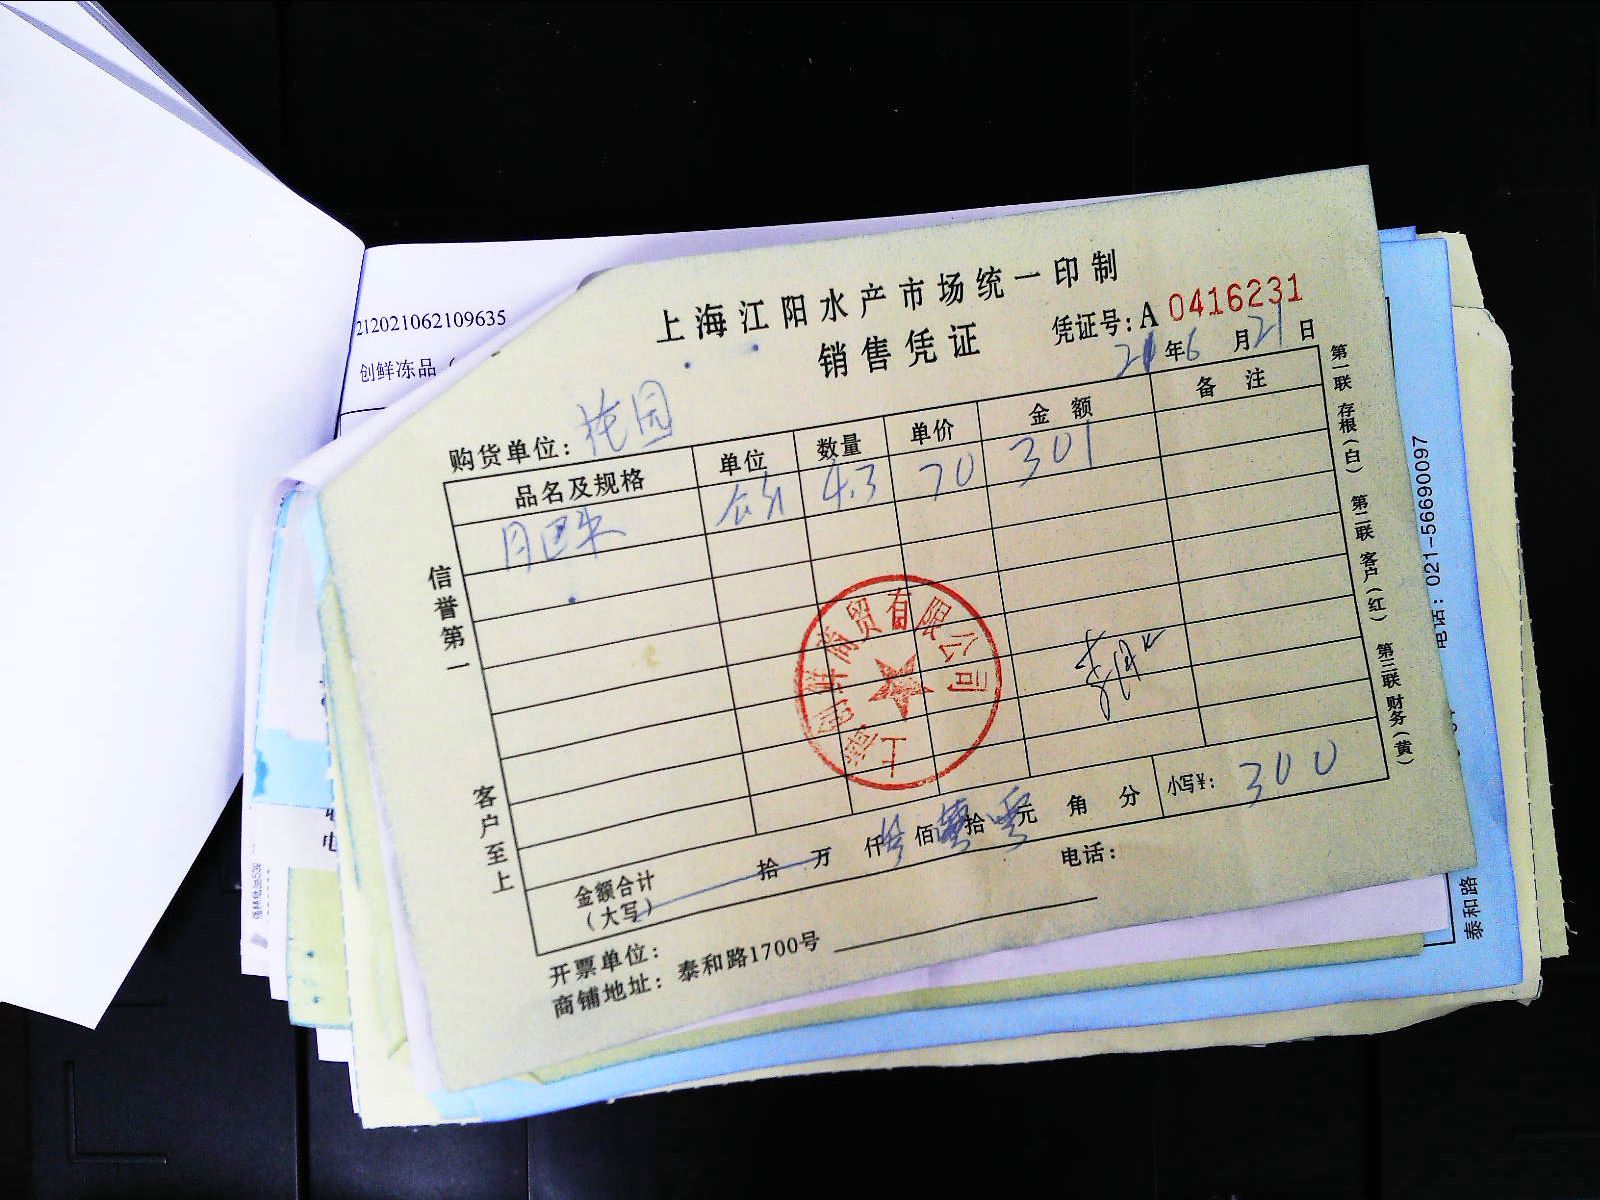 212021062109635
创鲜冻品（
上海江阳水产市场统一印制
销售凭证
凭证号：A 0416231
21年6月21日
购货单位：桃园
品名及规格 单位 数量 单价 金额 备注
月巴米 4.3 70 301
金额合计（大写） 拾 万 仟 叁佰零拾零元 角 分 小写¥： 300
开票单位： 电话：
商铺地址：泰和路1700号
信誉第一
客户至上
第一联 存根（白） 第二联 客户（红） 第三联 财务（黄）
上海创鲜商贸有限公司
电话：021-56690097
泰和路